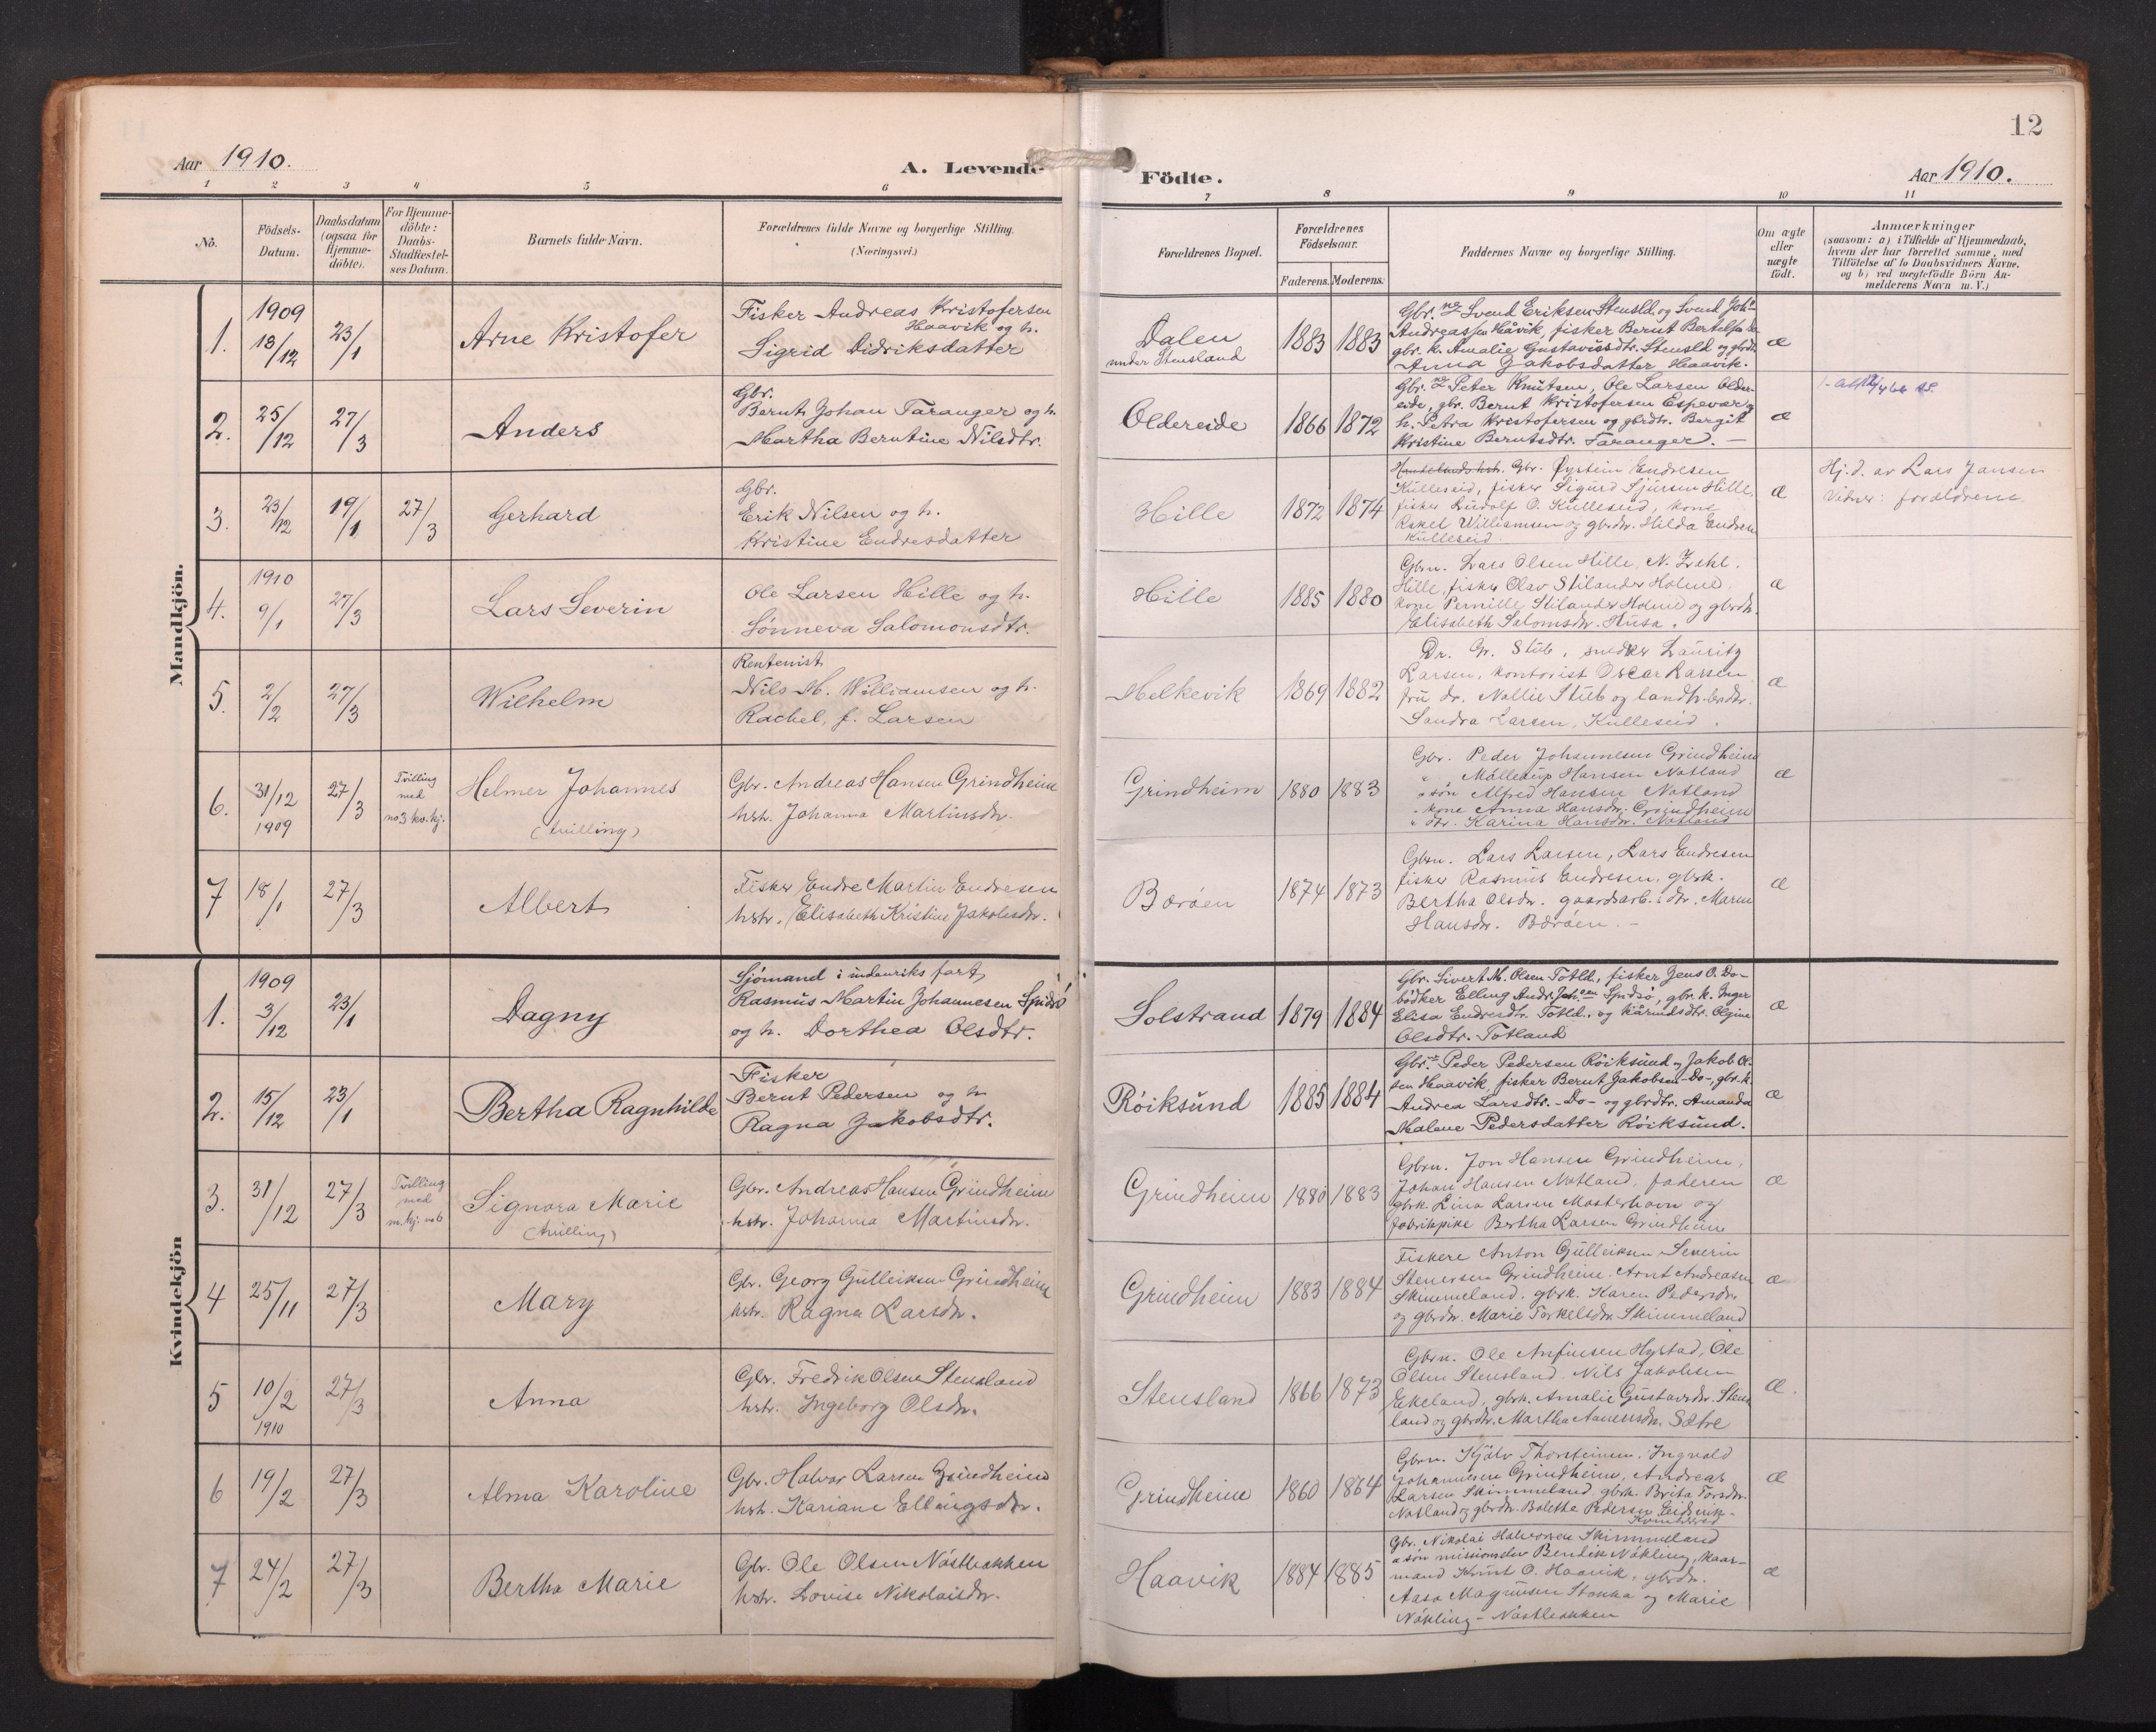 12
Aar 1910.
A. Levende Födte.
Aar 1910.
1 2 3 4 5 6 7 8 9 10 11
No.
Födsels-
Datum.
Daabsdatum
(ogsaa for
Hjemme-
döbte).
For Hjemme-
döbte:
Daabs-
Stadfæstel-
ses Datum.
Barnets fulde Navn.
Forældrenes fulde Navne og borgerlige Stilling.
(Næringsvei.)
Forældrenes Bopæl.
Forældrenes
Födselsaar.
Faderens. Moderens.
Faddernes Navne og borgerlige Stilling.
Om ægte
eller
uægte
födt.
Anmærkninger
(saasom: a) i Tilfælde af Hjemmedaab,
hvem der har forrettet samme, med
Tilföielse af to Daabsvidners Navne,
og b) ved uægtefödte Börn An-
melderens Navn m. V.)
Mandkjön.
1.
1909
13/12
23/1
Arne Kristofer
Fisker Andreas Kristofersen
Haavik og h.
Sigrid Didriksdatter
Dalen
under Stensland
1883 1883
Gbr.ne Svend Eriksen Stensld. og Svend Joh.
Andreassen Håvik, fisker Bernt Bertels
gbr. k. Amalie Gustavsdtr. Stensld og gbrdt.
Anna Jakobsdatter Haavik.
æ
2.
25/12
27/3
Anders
Gbr.
Bernt Johan Taranger og h.
Martha Berntine Nilsdtr.
Oldereide
1866 1872
Gbr.ne Peter Knutsen, Ole Larsen Older-
eide, gbr. Bernt Kristofersen Espevær og
h. Petra Kristofersen og gbrdtr. Bergit
Kristine Berntsdtr. Taranger. —
æ
3.
23/12
19/1
27/3
Gerhard
Gbr.
Erik Nilsen og h.
Kristine Endresdatter
Hille
1872 1874
Gbr. Øystein Endresen
Kulleseid, fisker Sigurd Sjursen Hille,
fisker Ludolf O. Kulleseid, kone
Rakel Williamsen og gbrdr. Hilda Endresen
Kulleseid.
æ
Hj.d. av Lars Jansen
Vidner: forældrene.
4.
1910
9/1
27/3
Lars Severin
Ole Larsen Hille og h.
Sønneva Salomonsdtr.
Hille
1885 1880
Gbrn. Lars Olsen Hille, N. Zahl.
Hille, fisker Olav Stilander Holme,
kone Pernille Stilander Holme og gbrdr.
Elisabeth Salomsdr. Husa.
æ
5.
2/2
27/3
Wilhelm
Rentenist
Nils M. Williamsen og h.
Rachel, f. Larsen
Melkevik
1869 1882
Dr. Gr. Stub, snedker Lauritz
Larsen, kontorist Oscar Larsen,
fru dr. Nallie Stub og landh.brdtr.
Sandra Larsen, Kulleseid.
æ
6.
31/12
1909
27/3
Tvilling
med
no 3 kv.kj.
Helmer Johannes
(tvilling)
Gbr. Andreas Hansen Grindheim
hstr. Johanna Martinsdr.
Grindheim
1880 1883
Gbr. Peder Johannesen Grindheim
" Mallerup Hansen Notland
" søn Alfred Hansen Notland
" kone Anna Hansdr. Grindheim
" dtr. Karina Hansdr. Notland
æ
7
18/1
27/3
Albert
Fisker Endre Martin Endresen
hstr. Elisabeth Kristine Jakobsdr.
Børøen
1874 1873
Gbrn. Lars Larsen, Lars Endresen
fisker Rasmus Endresen, gbrk.
Bertha Olsdr. gaardsarb.s dr. Maren
Hansdr. Børøen. —
æ
Kvindekjön
1.
1909
3/12
23/1
Dagny
Sjómand i indenriks fart,
Rasmus Martin Johannesen Spidsö
og h. Dorthea Olsdtr.
Solstrand
1879 1884
Gbr. Sivert M. Olsen Totld., fisker Jens O. Do-
bödker Elling Andr. Joh.sen Spidsø, gbr. k. Inger
Elisa Endresdtr. Totld. og kårmdsdtr. Olgine
Olsdtr. Totland
æ
2.
15/12
23/1
Bertha Ragnhilde
Fisker
Bernt Pedersen og h.
Ragna Jakobsdtr.
Röiksund
1885 1884
Gbr. Peder Pedersen Röiksund og Jakob Ol-
sen Haavik, fisker Bernt Jakobsen -Do-, gbr. k.
Andrea Larsdtr. -Do- og gbrdtr. Amanda
Malene Pedersdatter Röiksund.
æ
3.
31/12
27/3
Tvilling
med
m.kj. no 6
Signora Marie
(tvilling)
Gbr. Andreas Hansen Grindheim
hstr. Johanna Martinsdr.
Grindheim
1880 1883
Gbrn. Jon Hansen Grindheim,
Johan Hansen Notland, faderen
gbrk. Lina Larsen Mosterhavn og
fabrikpike Bertha Larsen Grindheim
æ
4
25/11
27/3
Mary
Gbr. Georg Gulleiksen Grindheim
hstr. Ragna Larsdr.
Grindheim
1883 1884
Fiskere Anton Gulleiksen, Severin
Stenersen Grindheim. Arnt Andreasen
Skimmeland. gbrk. Karen Pedersdr.
og gbrdr. Marie Torkelsdr. Skimmeland
æ
5
10/2
1910
27/3
Anna
Gbr. Fredrik Olsen Stensland
hstr. Ingeborg Olsdr.
Stensland
1866 1873
Gbrn. Ole Anfinsen Hystad, Ole
Olsen Stensland. Nils Jakobsen
Ekeland, gbrk. Amalie Gustavsdr. Stens
land og gbrdr. Martha Aanensdr. Sætre
æ.
6
19/2
27/3
Alma Karoline
Gbr. Halvor Larsen Grindheim
hstr. Kariane Ellingsdr.
Grindheim
1860 1864
Gbrn. Kjølv Thorsteinsen, Ingvald
Johannesen Grindheim, Andreas
Larsen Skimmeland. gbrk. Brita Torsdr.
Notland og gbrdr. Bolette Pedersen
æ
7
24/2
27/3
Bertha Marie
Gbr. Ole Olsen Nåstbakken
hstr. Lovise Nikolaisdr.
Haavik
1884 1885
Gbr. Nikolai Halvorsen Skimmeland
" søn missionselev Bendik Nökling, kaar-
mand Knut O. Haavik, gbrdr.
Aasa Magnusen Stokka og Marie
Nökling — Nåstbakken
æ